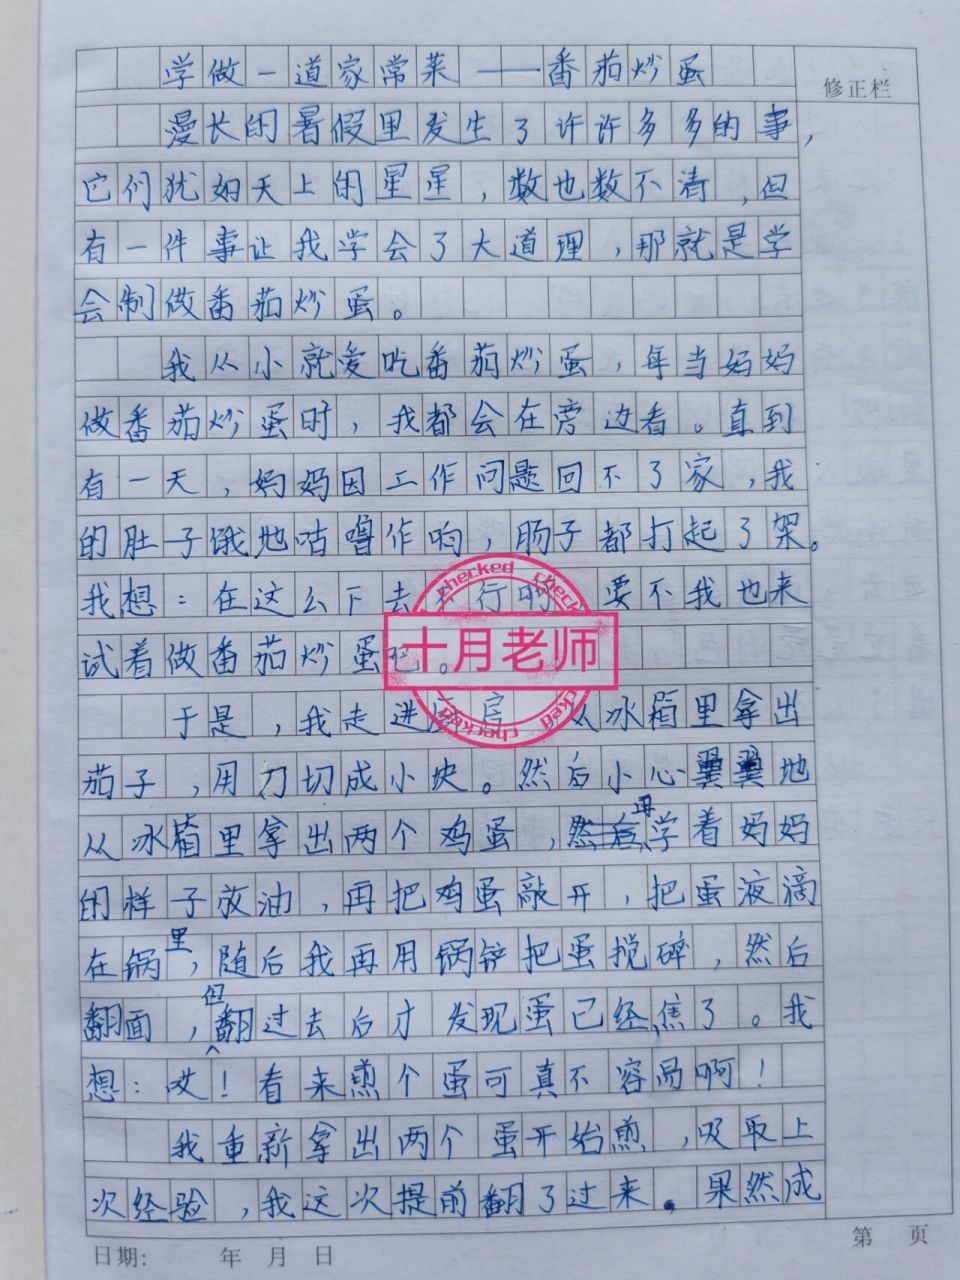 学做一道家常菜——番茄炒蛋
修正栏
漫长的暑假里发生了许许多多的事，
它们犹如天上的星星，数也数不清，但
有一件事让我学会了大道理，那就是学
会制做番茄炒蛋。
我从小就爱吃番茄炒蛋，每当妈妈
做番茄炒蛋时，我都会在旁边看。直到
有一天，妈妈因工作问题回不了家，我
的肚子饿地咕噜作响，肠子都打起了架。
我想：在这么下去 行 要不我也来
试着做番茄炒蛋吧。
checked checked checked
十月老师
于是，我走进 从冰箱里拿出
茄子，用刀切成小块。然后小心翼翼地
从冰箱里拿出两个鸡蛋，再学着妈妈
的样子放油，再把鸡蛋敲开，把蛋液滴
在锅里，随后我再用锅铲把蛋搅碎，然后
翻面，但翻过去后才发现蛋已经焦了。我
想：哎！看来煎个蛋可真不容易啊！
我重新拿出两个蛋开始煎，吸取上
次经验，我这次提前翻了过来。果然成
日期: 年 月 日
第 页